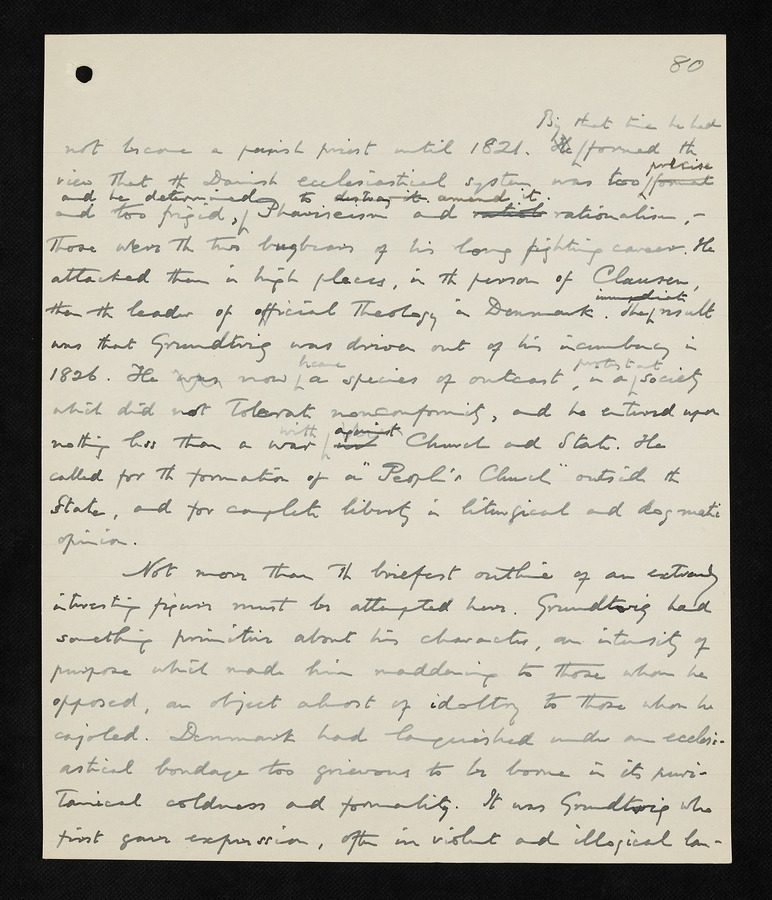 80
By that time he had
not become a parish priest until 1821. He formed the
view that the Danish ecclesiastical system was too formal
precise
and he determined to destroy it amend it.
and too frigid, Phariseeism and rationalism, –
those were the two bugbears of his long fighting career. He
attacked them in high places, in the person of Clausen,
then the leader of official Theology in Denmark. The result
immediate
was that Grundtvig was driven out of his incumbency in
1826. He was now a species of outcast, in a society
became protestant
which did not tolerate nonconformity, and he entered upon
nothing less than a war Church and State. He
with against
called for the formation of a "People's Church" outside the
State, and for complete liberty in liturgical and dogmatic
opinion.
Not more than the briefest outline of an extremely
interesting figure must be attempted here. Grundtvig had
something primitive about his character, an intensity of
purpose which made him maddening to those whom he
opposed, an object almost of idoltry to those whom he
cajoled. Denmark had languished under an ecclesi-
astical bondage too grievous to be borne in its puri-
tanical coldness and formality. It was Grundtvig who
first gave expression, often in violent and illogical lan-